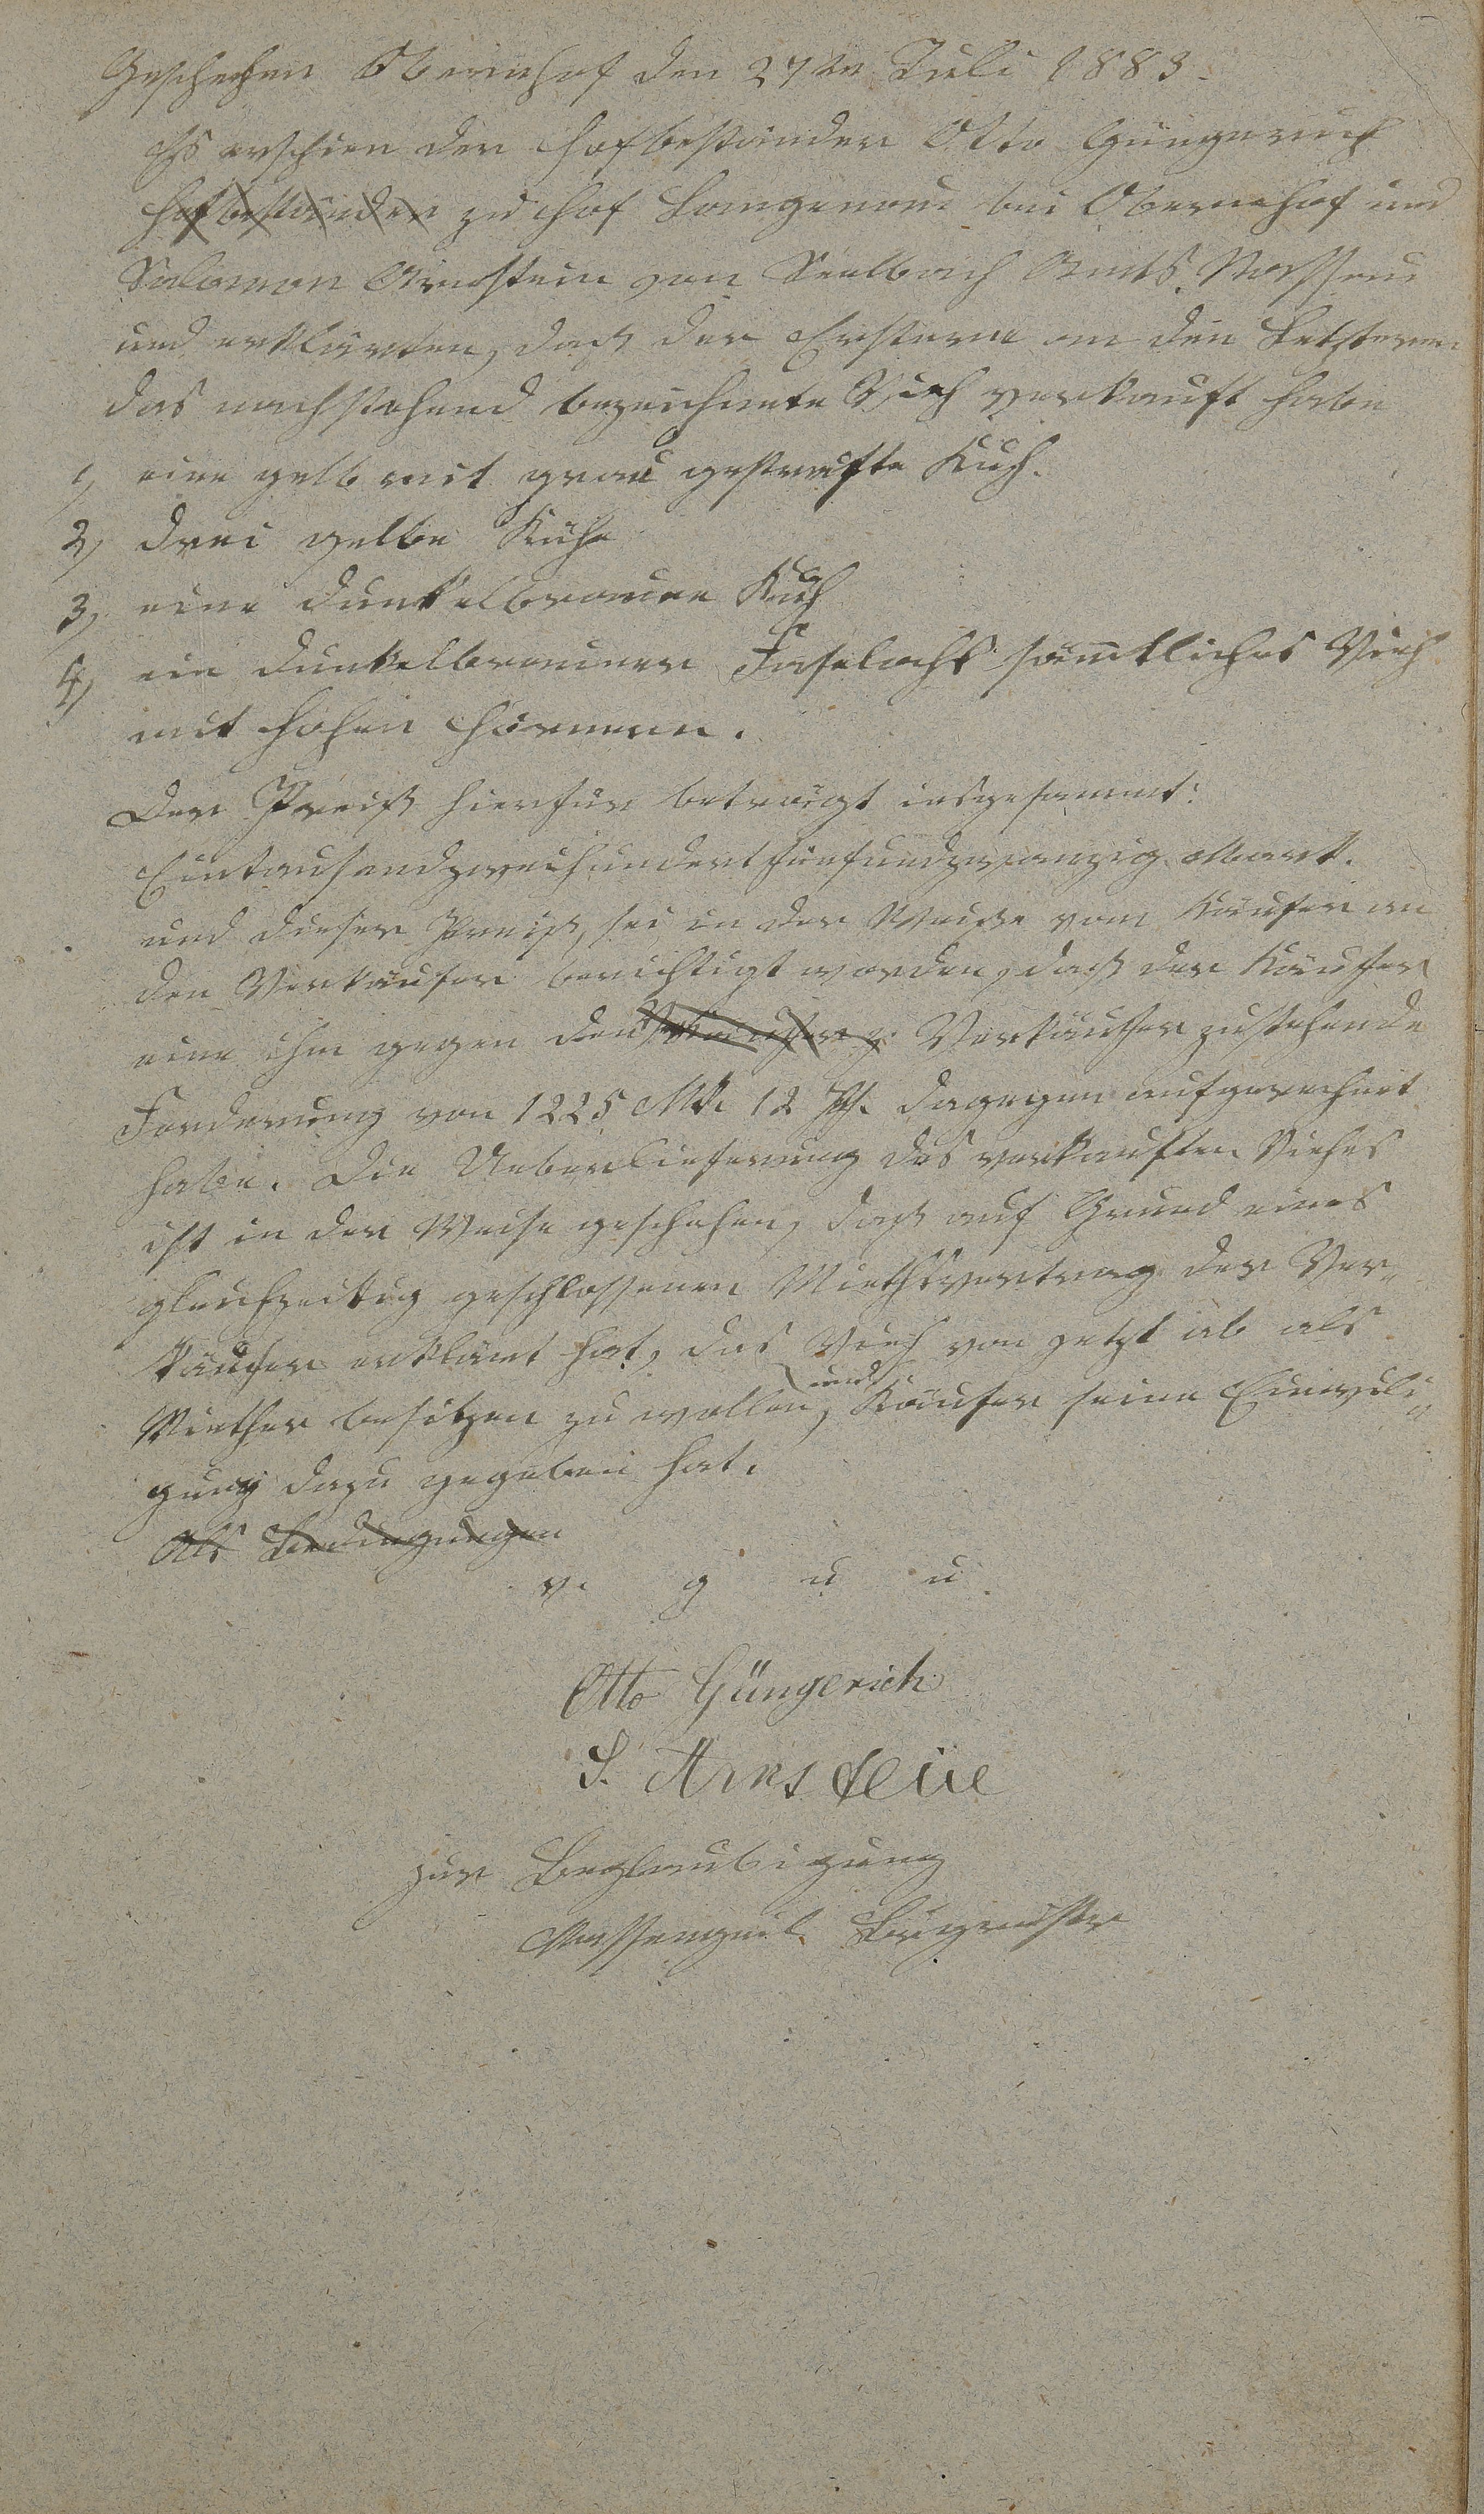 Geschehen Obernhof den 27ten Juli 1883.
Es erschien der Hofbeständer Otto Güngerich
Hofbeständer zu Hof Langenau bei Obernhof und
Salomon Arnstein von Seelbach Amts Nassau
und erklärten, daß der Erstere an den Letzteren
das nachstehend bezeichnete Vieh verkauft habe
1, eine gelb mit grau gestreifte Kuh.
2, drei gelbe Kühe
3, eine dunkelbraune Kuh
4, ein dunkelbrauner Faselochs sämtliches Vieh
mit hohen Hörnern.
Der Preiß hierfür beträgt insgesammt:
Eintausendzweihundertfünfundzwanzig Mark.
und dieser Preiß, sei in der Weise vom Käufer an
den Verkäufer berichtigt worden, daß der Käufer
eine ihm gegen den Verkäufer zustehende
Forderung von 1225 Mk. 12 Pf. dagegen aufgerechnet
habe. Die Ueberlieferung des verkauften Viehes
ist in der Weise geschehen, daß auf Grund eines
gleichzeitig geschlossenen Miethsvertrag der Ver-
käufer erklärt hat, das Vieh von jetzt ab als
Miether besitzen zu wollen, und Käufer seine Einwili-
gung dazu gegeben hat.
Als Bedingungen
v. g. u. u.
Otto Güngerich
S. Arnstein
Zur Beglaubigung
Bürgermstr